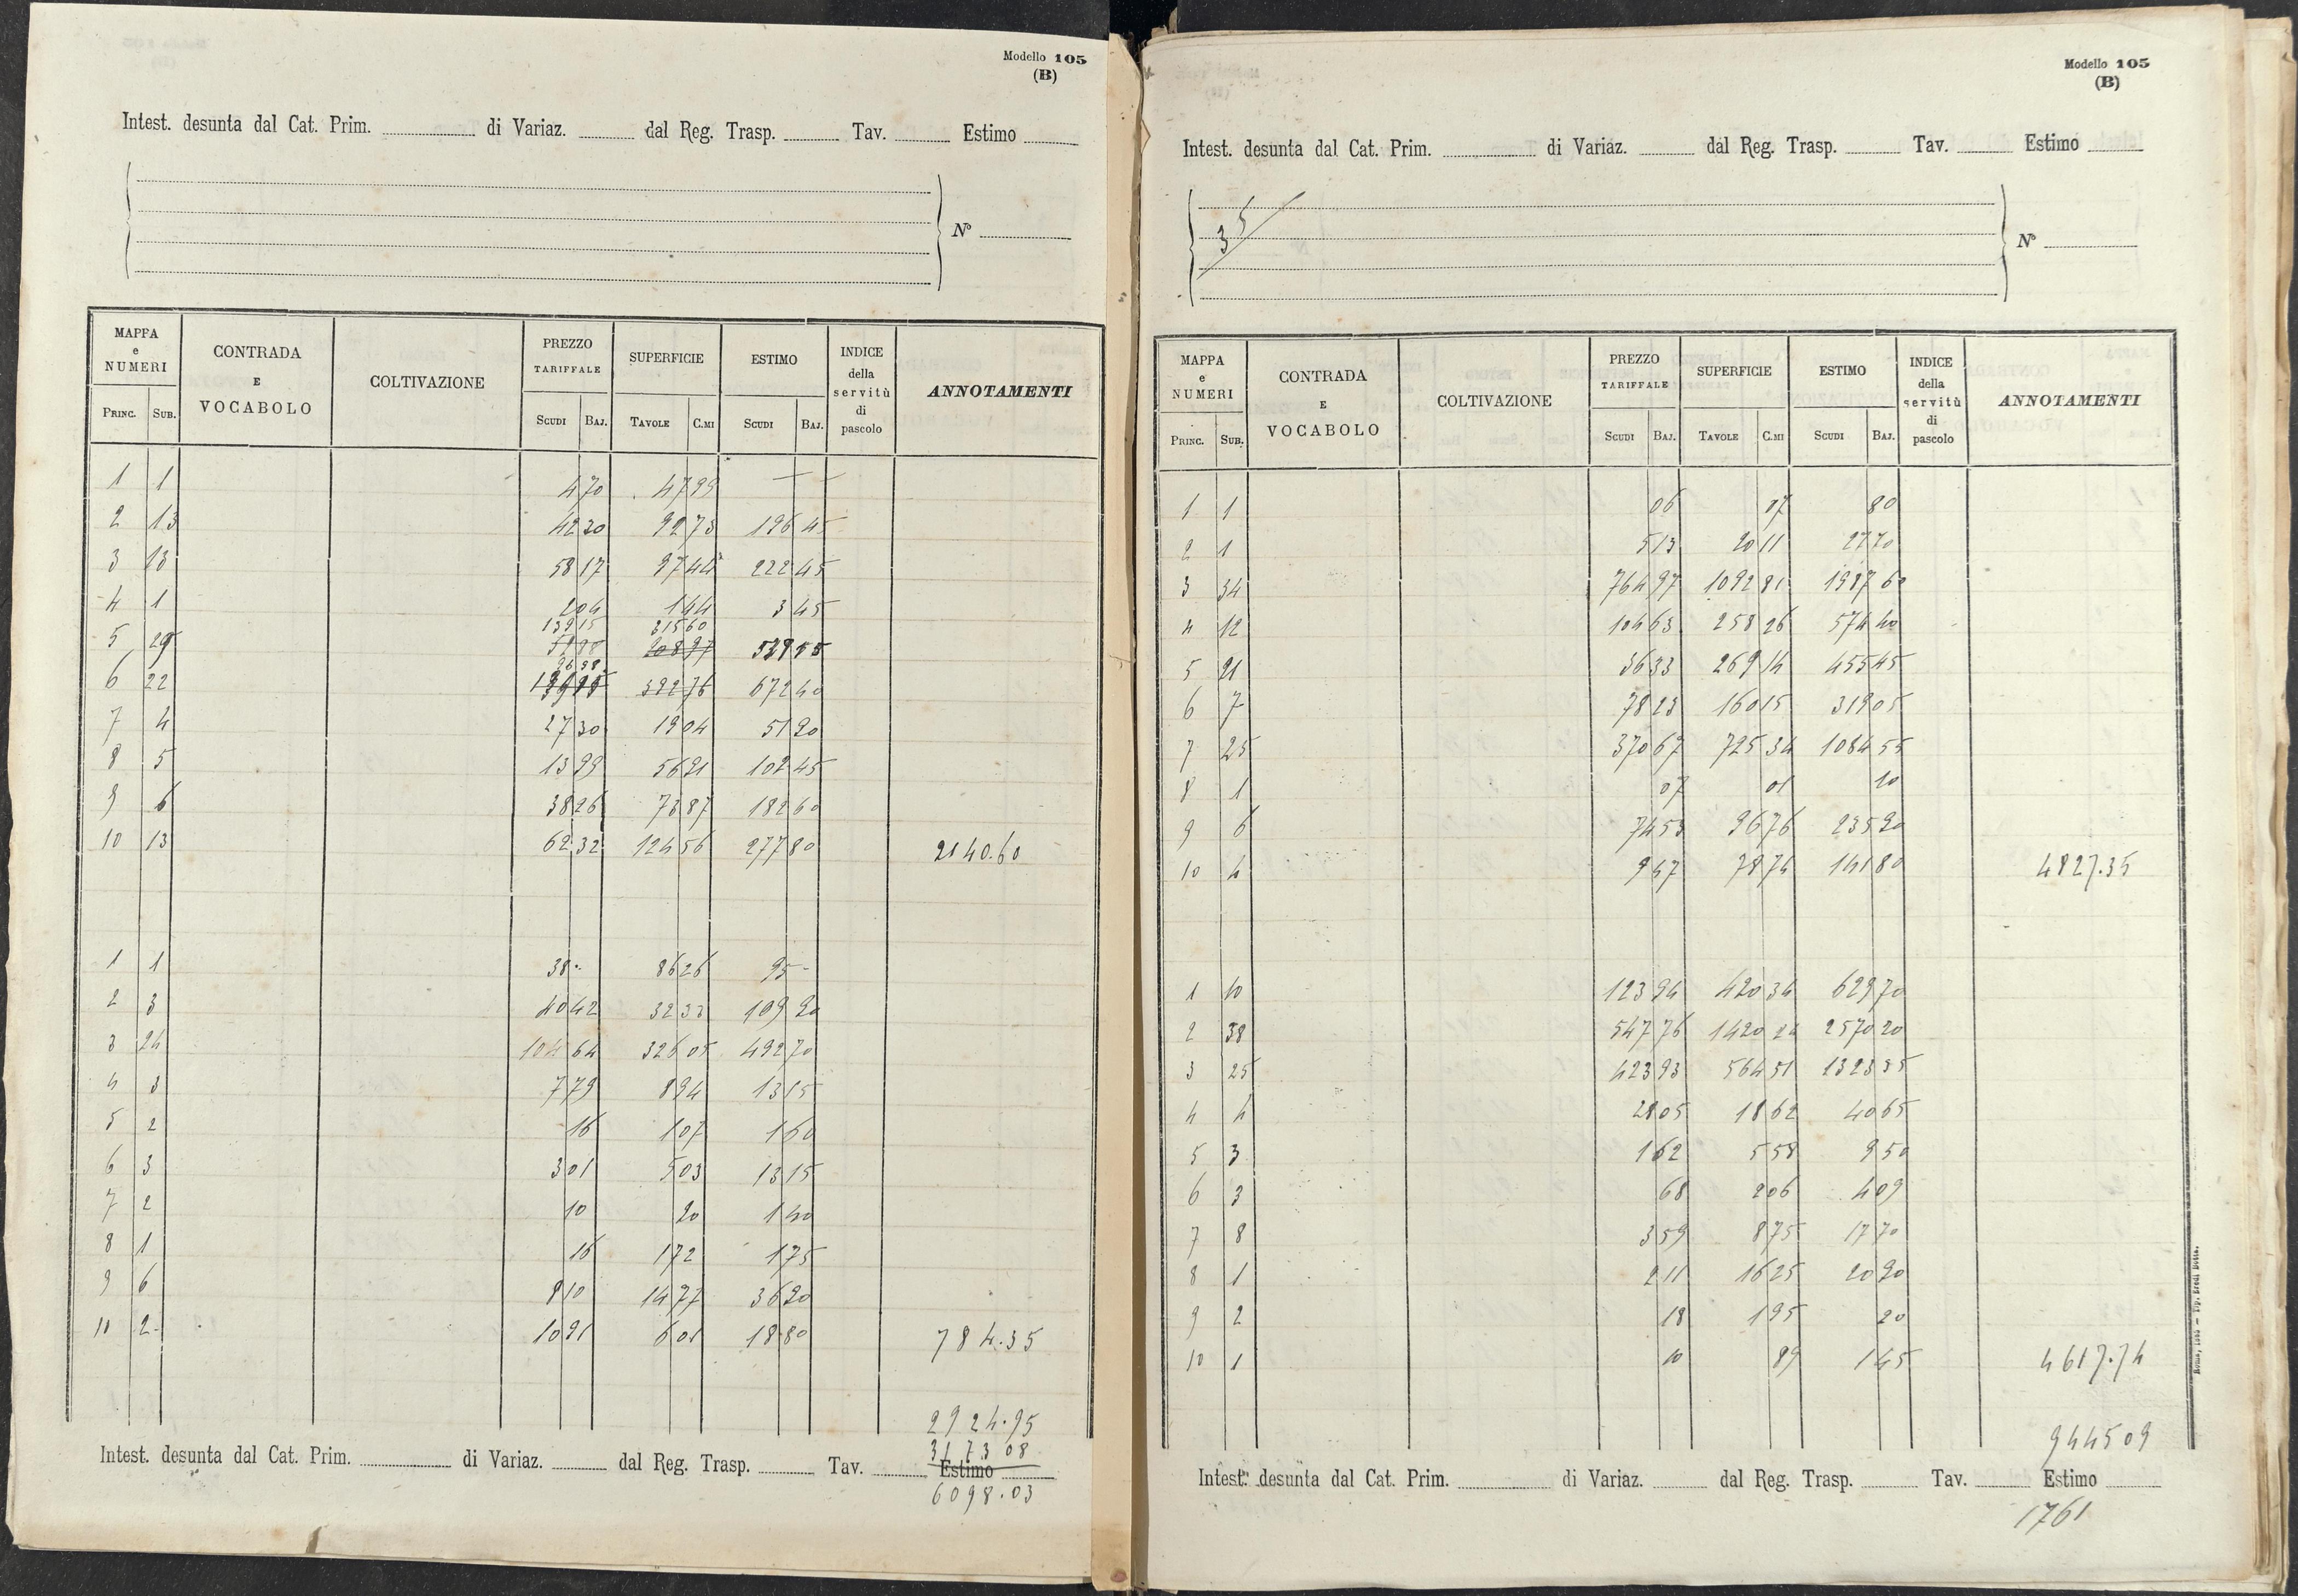 Modello 105
(B)
Intest. desunta dal Cat. Prim. di Variaz. dal Reg. Trasp. Tav. Estimo
N°
MAPPA e NUMERI CONTRADA E VOCABOLO COLTIVAZIONE PREZZO TARIFFALE SUPERFICIE ESTIMO INDICE della servitù di pascolo ANNOTAMENTI
PRINC. SUB. SCUDI BAJ. TAVOLE C.MI SCUDI BAJ.
1 1 4 70 47 99 — —
2 13 42 20 92 73 196 45
3 13 58 17 97 44 222 45
4 1 2 04 1 44 3 45
139 15 315 60
5 29 208 97 529 55
96 98
6 22 392 76 672 40
7 4 27 30 19 04 51 20
8 5 13 99 56 21 102 45
9 6 38 26 73 87 182 60
10 13 62 32 124 56 277 80 2140.60
1 1 38 - 86 26 95 -
2 3 40 42 32 33 109 20
3 24 104 64 326 05 492 70
4 3 7 79 8 94 13 15
5 2 16 1 07 1 60
6 3 3 01 5 03 13 15
7 2 10 20 1 40
8 1 16 1 72 1 75
9 6 8 10 14 77 36 20
10 2 10 91 6 01 18 80 784.35
2924.95
3173 08
Intest. desunta dal Cat. Prim. di Variaz. dal Reg. Trasp. Tav. Estimo
6098.03
Modello 105
(B)
Intest. desunta dal Cat. Prim. di Variaz. dal Reg. Trasp. Tav. Estimo
35
N°
MAPPA e NUMERI CONTRADA E VOCABOLO COLTIVAZIONE PREZZO TARIFFALE SUPERFICIE ESTIMO INDICE della servitù di pascolo ANNOTAMENTI
PRINC. SUB. SCUDI BAJ. TAVOLE C.MI SCUDI BAJ.
1 1 06 07 80
2 1 5 13 20 11 27 70
3 34 764 97 1092 81 1987 60
4 12 104 63 258 26 574 40
5 21 36 33 269 14 455 45
6 7 78 23 160 15 319 05
7 25 370 67 725 34 1084 55
8 1 07 01 10
9 6 74 53 96 76 235 20
10 4 9 47 78 74 141 80 4827.35
1 10 123 94 420 34 629 70
2 38 547 76 1420 24 2570 20
3 25 423 93 564 51 1323 35
4 4 28 05 18 62 40 65
5 3 1 62 5 58 9 50
6 3 68 2 06 4 09
7 8 3 59 8 75 17 70
8 1 2 11 16 25 20 20
9 2 18 1 95 20
10 1 10 89 1 45 4617.74
9445 09
Intest. desunta dal Cat. Prim. di Variaz. dal Reg. Trasp. Tav. Estimo
1761